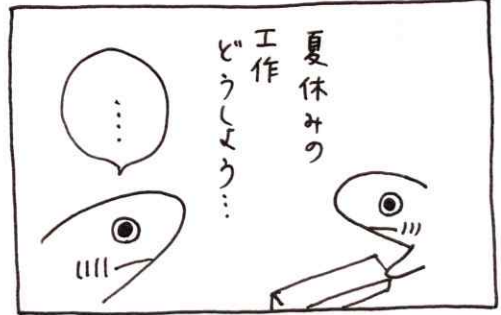 夏休みの
工作
どうしよう…
‥‥